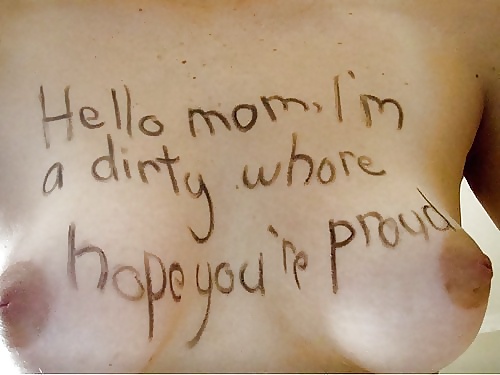 Hello mom, I'm
a dirty whore
hope you're proud